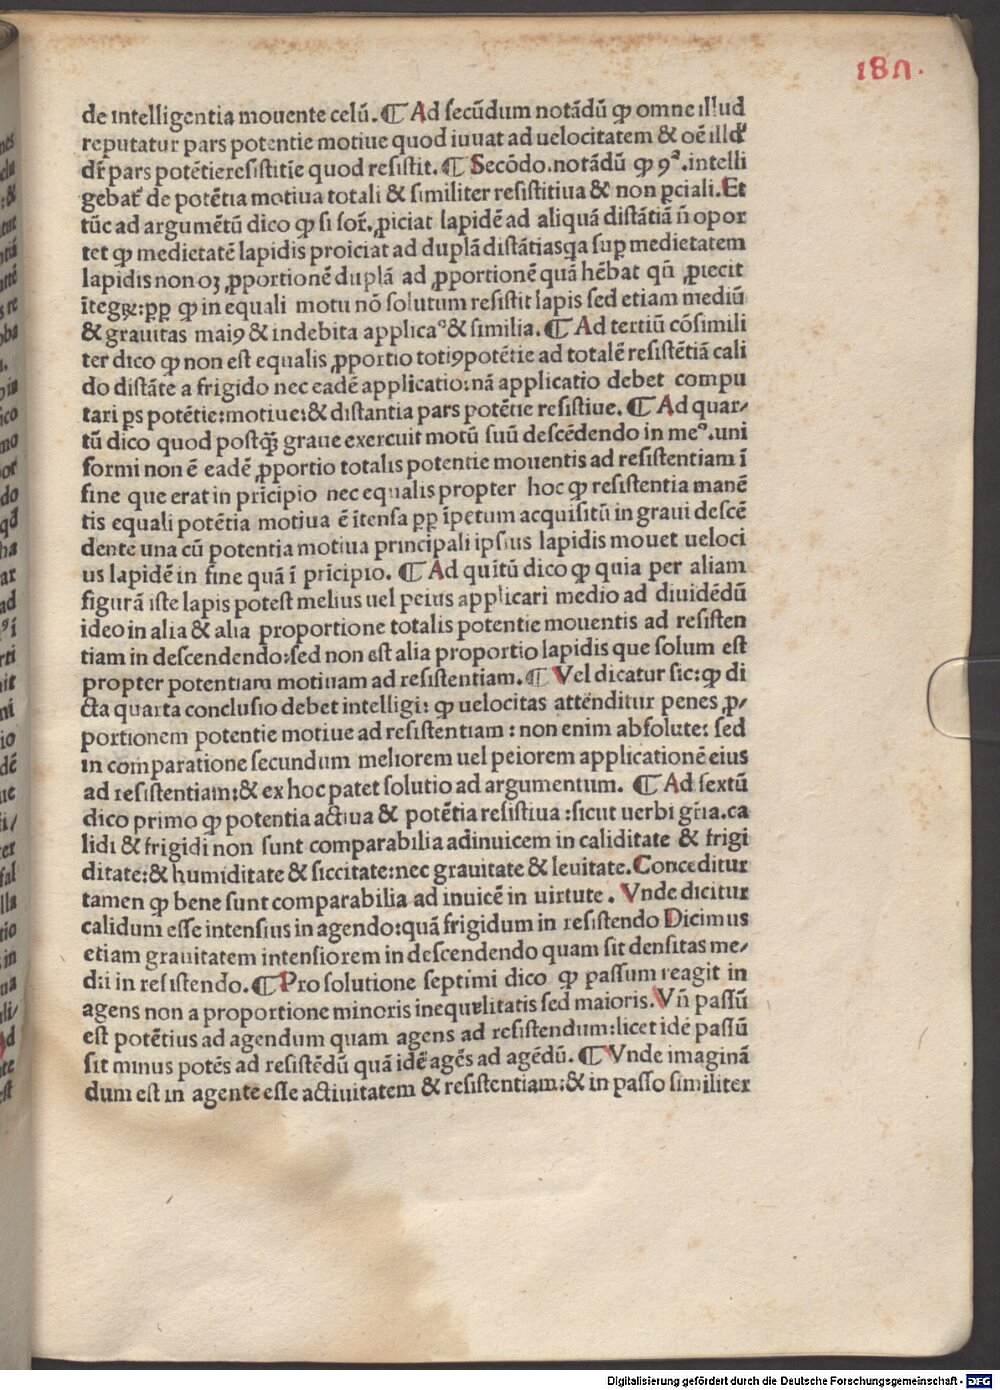 187.
de intelligentia mouente celū. ¶ Ad secūdum notādū ꝙ omne illud
reputatur pars potentie motiue quod iuuat ad uelocitatem & oē illdʼ
dr̄ pars potētieresistitie quod resistit. ¶ Secōdo.notādū ꝙ 9ᵃ.intelli
gebat᷑ de potētia motiua totali & similiter resistitiua & non ꝑciali. Et
tūc ad argumētū dico ꝙ si sor̄. ꝓiciat lapidē ad aliquā distātiā n̄ opor
tet ꝙ medietatē lapidis proiciat ad duplā distātiasqa suꝑ medietatem
lapidis non oꝫ ꝓportionē duplā ad ꝓportionē quā hēbat qn̄ ꝓiecit
ītegꝝ:ꝓꝑ ꝙ in equali motu nō solutum resistit lapis sed etiam mediū
& grauitas maiꝰ & indebita applicaᵒ & similia. ¶ Ad tertiū cōsimili
ter dico ꝙ non est equalis ꝓportio totiꝰpotētie ad totalē resistētiā cali
do distāte a frigido nec eadē applicatio:nā applicatio debet compu
tari ꝑs potētie:motiue:& distantia pars potētie resistiue. ¶ Ad quar⸗
tū dico quod postꝗ̄ graue exercuit motū suū descēdendo in meᵒ.uni
formi non ē eadē ꝓportio totalis potentie mouentis ad resistentiam ī
fine que erat in prīcipio nec equalis propter hoc ꝙ resistentia manē
tis equali potētia motiua ē ītensa ꝓꝑ īpetum acquisitū in graui descē
dente una cū potentia motiua principali ipsius lapidis mouet ueloci
us lapidē in fine quā ī prīcipio. ¶ Ad quītū dico ꝙ quia per aliam
figurā iste lapis potest melius uel peius applicari medio ad diuidēdū
ideo in alia & alia proportione totalis potentie mouentis ad resisten
tiam in descendendo:sed non est alia proportio lapidis que solum est
propter potentiam motiuam ad resistentiam. ¶ Vel dicatur sic:ꝙ di
cta quarta conclusio debet intelligi: ꝙ uelocitas attēnditur penes ꝓ⸗
portionem potentie motiue ad resistentiam : non enim absolute: sed
in comparatione secundum meliorem uel peiorem applicationē eius
ad resistentiam:& ex hoc patet solutio ad argumentum. ¶ Ad sextū
dico primo ꝙ potentia actiua & potētia resistiua :sicut uerbi gr̄ia.ca
lidi & frigidi non sunt comparabilia adinuicem in caliditate & frigi
ditate:& humiditate & siccitate:nec grauitate & leuitate. Conceditur
tamen ꝙ bene sunt comparabilia ad inuicē in uirtute . Vnde dicitur
calidum esse intensius in agendo:quā frigidum in resistendo Dicimus
etiam grauitatem intensiorem in descendendo quam sit densitas me⸗
dii in resistendo. ¶ Pro solutione septimi dico ꝙ passum reagit in
agens non a proportione minoris inequelitatis sed maioris. Vn̄ passū
est potētius ad agendum quam agens ad resistendum:licet idē passū
sit minus potēs ad resistēdū quā idē agēs ad agēdū. ¶ Vnde imaginā
dum est in agente esse actiuitatem & resistentiam:& in passo similiter
Digitalisierung gefördert durch die Deutsche Forschungsgemeinschaft - DFG